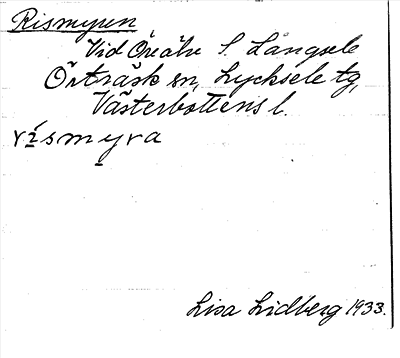 Rismyren
Vid Öreälv S Långsele
Örträsk sn, Lycksele tg,
Västerbottens l.
rísmyra
Lisa Lidberg 1933.